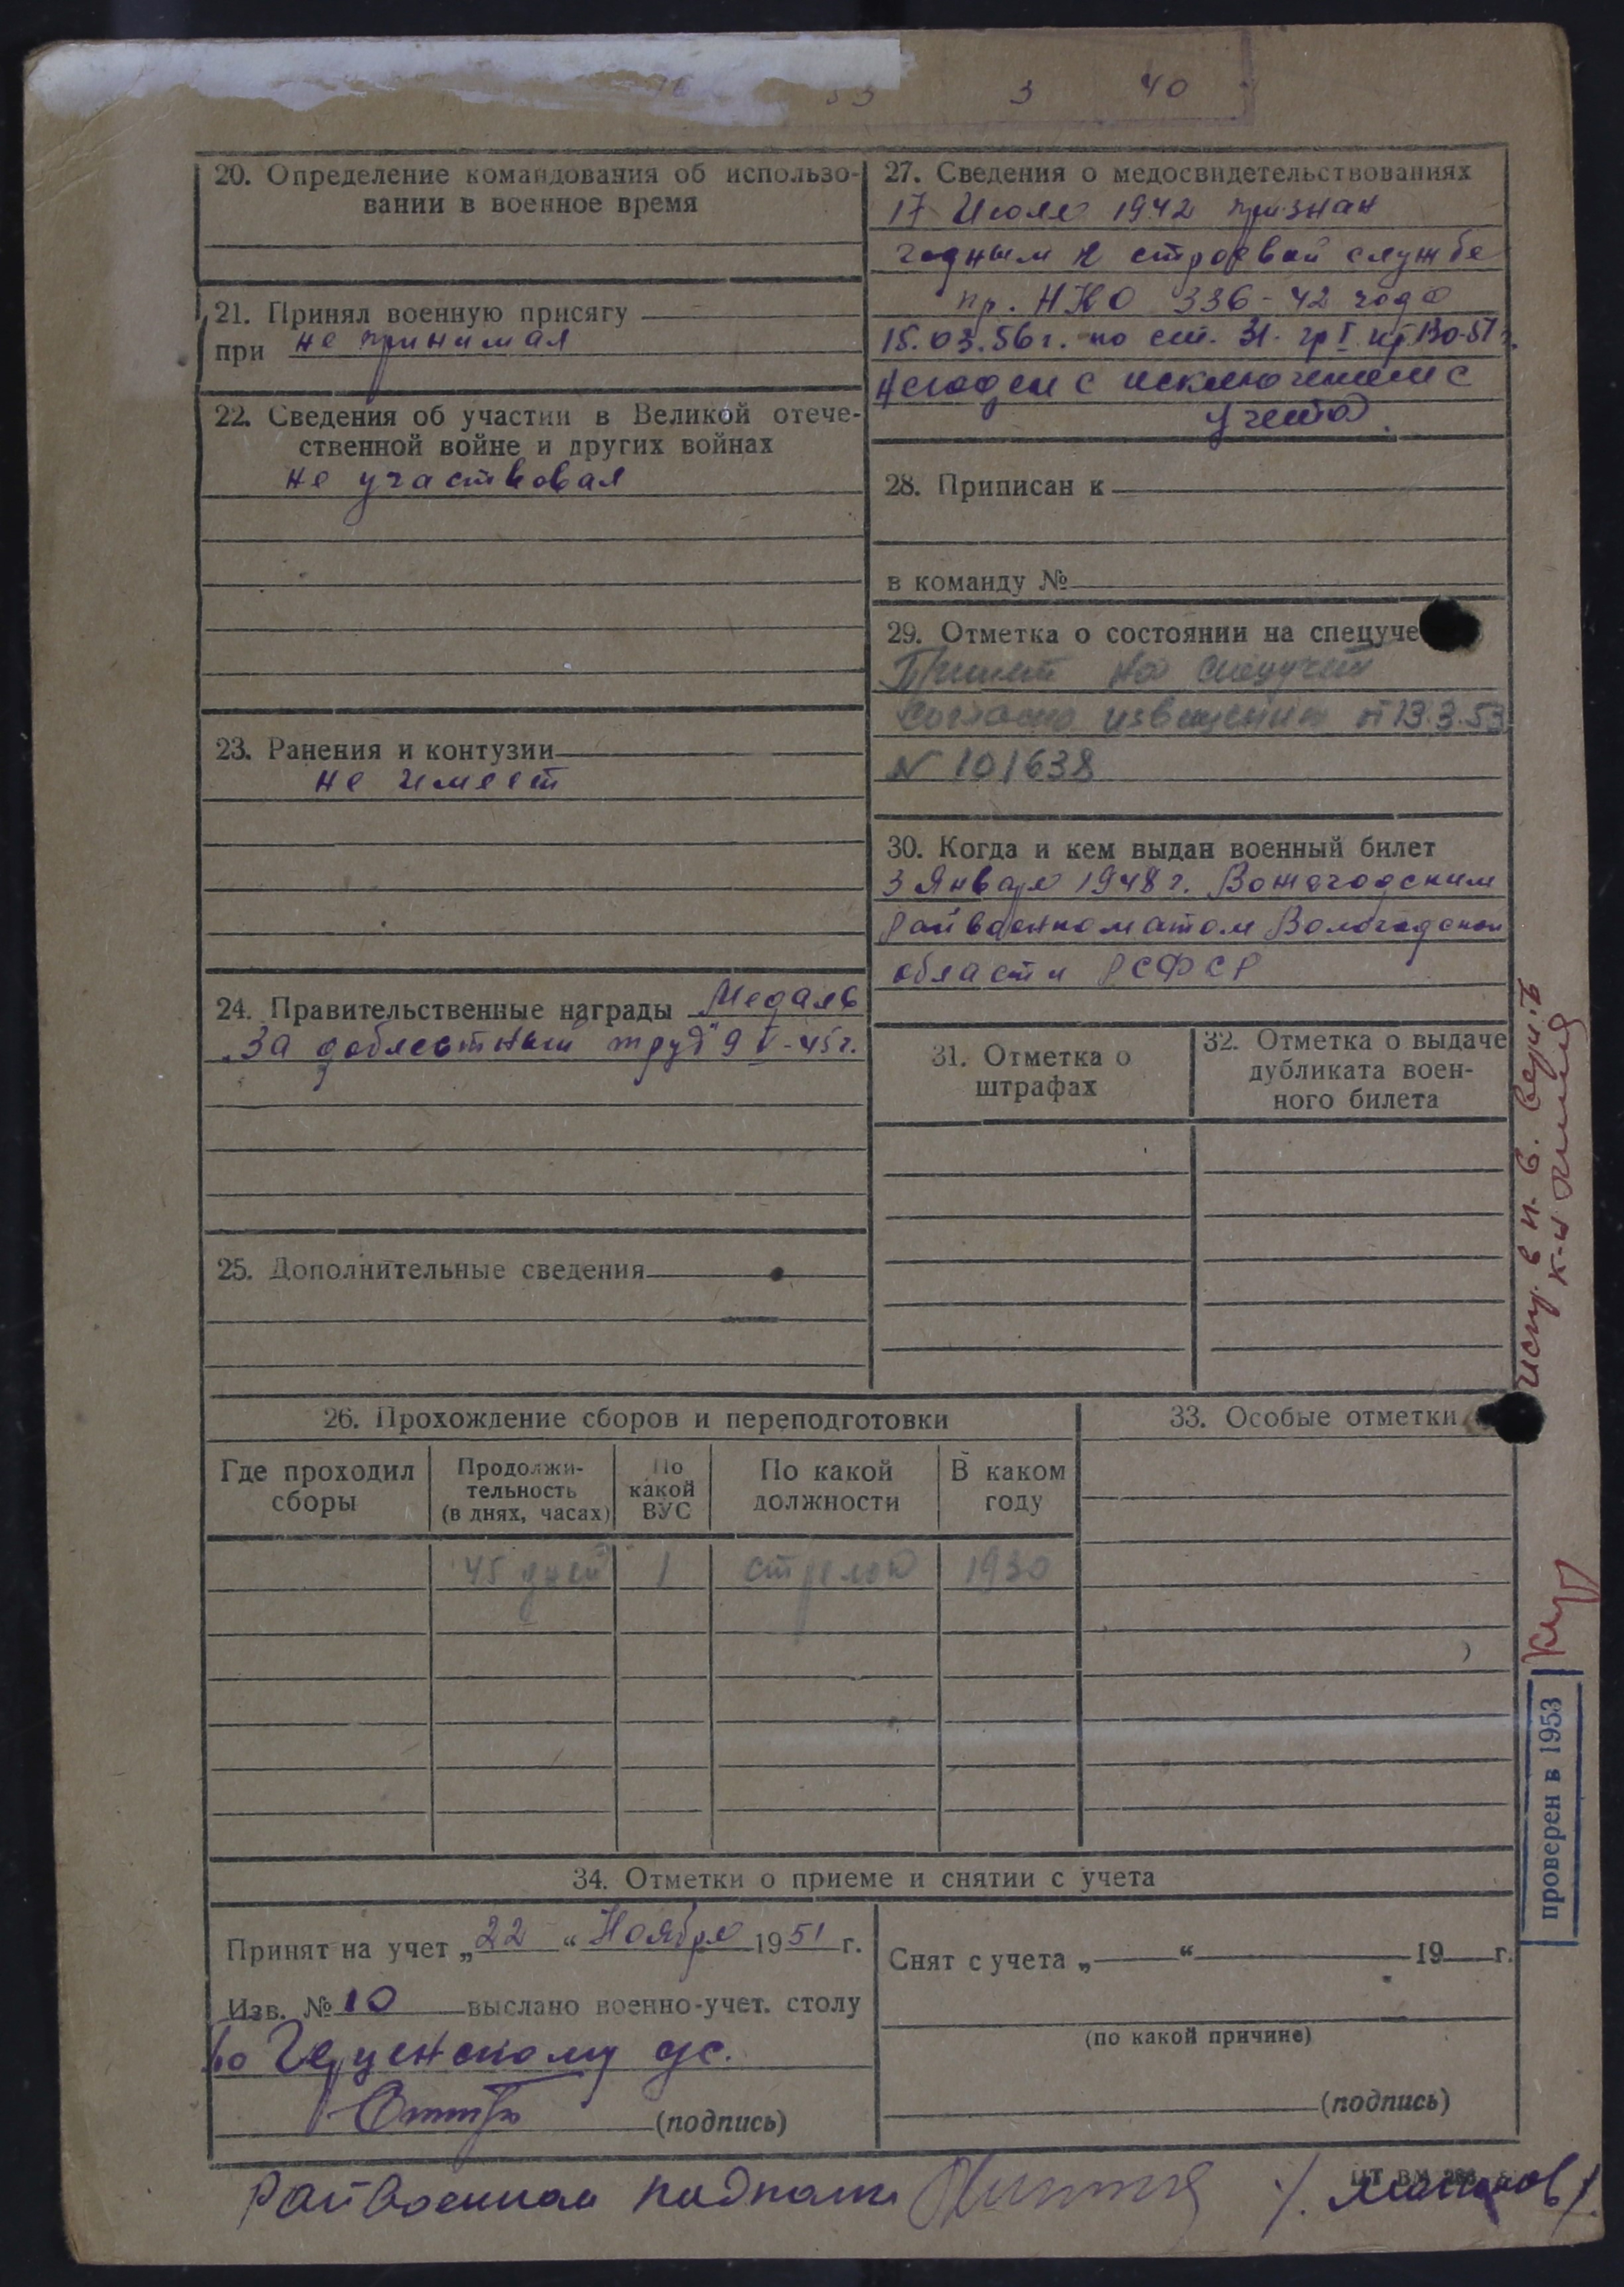 33 3 40
20. Определение командования об использо-
вании в военное время
21. Принял военную присягу
при не принимал
22. Сведения об участии в Великой отече-
ственной войне и других войнах
не участвовал
23. Ранения и контузии
не имеет
24. Правительственные награды Медаль
„За доблестный труд" 9 V-45г.
25. Дополнительные сведения
27. Сведения о медосвидетельствованиях
17 Июля 1942 признан
годным к строевой службе
пр. НКО 336-42 года
15.03.56г. по ст. 31. гр I пр 130-51г.
Негоден с исключением с
учета.
28. Приписан к
в команду №
29. Отметка о состоянии на спецуче
Принят на спецучет
согласно извещения от 13.3.53
N 101638
30. Когда и кем выдан военный билет
3 Января 1948г. Вожегодским
Райвоенкоматом Вологодской
области РСФСР
31. Отметка о
штрафах
32. Отметка о выдаче
дубликата воен-
ного билета
26. Прохождение сборов и переподготовки
Где проходил
сборы
Продолжи-
тельность
(в днях, часах)
По
какой
ВУС
По какой
должности
В каком
году
45 дней 1 стрелок 1930
33. Особые отметки
34. Отметки о приеме и снятии с учета
Принят на учет „22" Ноября 1951 г.
Изв. № 10 выслано военно-учет. столу
по
(подпись)
Снят с учета „ " 19 г.
(по какой причине)
(подпись)
Райвоенком подполк
проверен в 1953